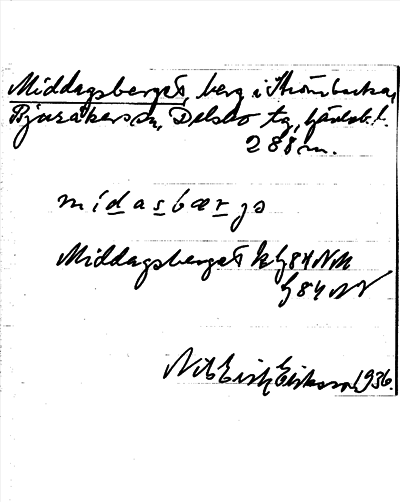 Middagsberget, berg i Strömbacka,
Bjuråkers sn, Delsbo tg, Hävlsb. l.
288 m.
mídasbærjə
Middagsberget bl G84 NM
G84 NV
Nils Erik Eriksson 1936.